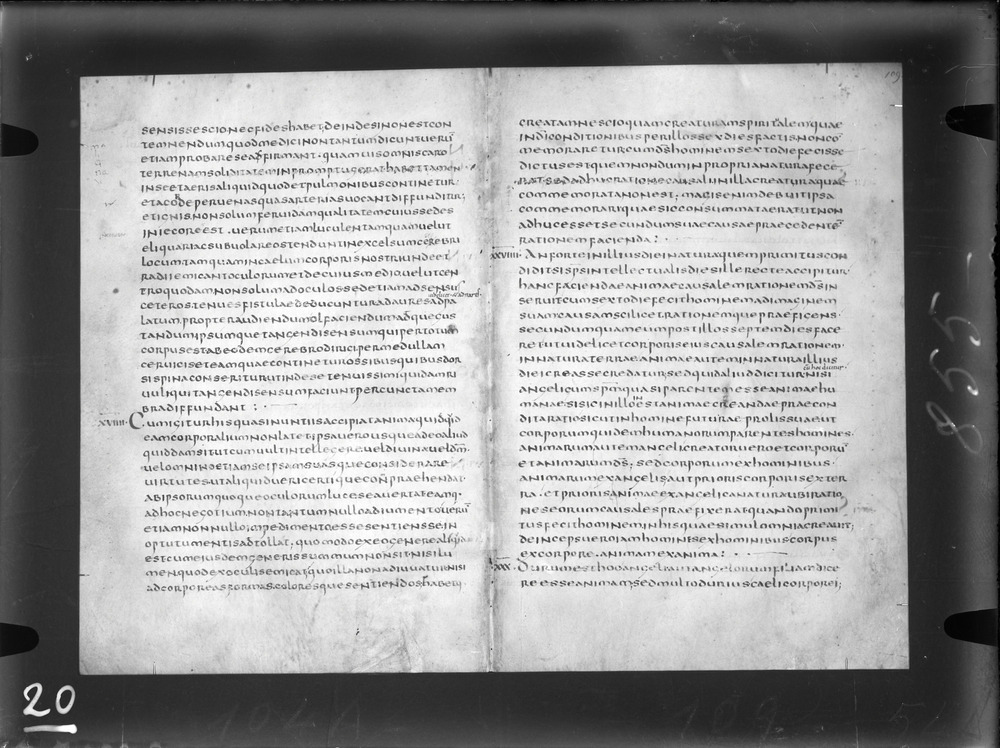 sensissescionecfideshabet;deindesinonestcon
temnendumquodmedicinontantumdicuntuerū
etiamprobareseaffirmant·quamuisomniscaro
terrenamsoliditateminpromptugerathabettamen
insetaerisaliquidquodetpulmonibuscontinetur·
etacordeperuenasquasarteriasuocantdiffunditur;
etignisnonsolumferuidamqualitatemcuiussedes
iniecoreest·uerumetiamluculentamquamuelut
eliquariacsubuolareostenduntinexcelsumcerebri
locumtamquamincaelumcorporisnostriundeet
radiiemicantoculorumetdecuiusmedioueluteen
troquodamnonsolumadoculossedetiamadsensus
ceterostenuesfistulaededucunturadauresadpa
latum·propteraudiendumolfaciendumadquegus
tandumipsumquetangendisensumquipertotum
corpusestabeodemcerebrodiriciper medullam
ceruiciseteamquaecontineturossibusquibusdor
sispinaconserituritindesetenuissimiquidamri
uuliquitangendisensumfaciuntpercunctamem
bradiffundant:
XXVIIII· Cumigiturhisquasinuntiisaccipiatanimaquidquid
eamcorporaliumnonlatetipsauerousqueadeoaliud
quiddamsitutcumuultintellegereueldiuinaueldm̄·
uelomninoetiamseipsamsuasqueconsiderare
uirtutesutaliquidueri certiquecon̄praehendat
abipsorumquoqueoculorumluceseauertateamq·
adhocnegotiumnontantumnulloadiumentouerū
etiamnonnulloimpedimentoessesentiensse in
optutumentisadtollat;quomodoexeogenerealiquid
estcumeiusdemgenerissummumnonsitnisilu
menquodexoculisemicatquoillanonadiuuaturnisi
adcorporeasformascoloresquesentiendoshabetq·
109
creatamnescioquamcreaturamspiritalemquae
indiconditionibusperillossexdiesfactisnonco
memoraretur cumd̄s hominemsextodiefecisse
dictusestquemnonduminproprianaturafece
ratsedadhucrationecausaliinillacreaturaquae
commemoratanonest;magisenimdebuitipsa
commemorariquaesicconsummataeratutnon
adhucessetsecundumsuaecausaepraecedente
rationemfacienda:
XXVIIII· Anforteinilliusdieinaturaquemprimituscon
diditsispsintellectualisdiesillerecteaccipitur·
hancfaciendaeanimaecausalemrationemd̄sin
seruitcumsextodiefecithominemadimaginem
suamcausamscilicetrationemquepraeficens·
secundumquameumpostillosseptemdiesface
retutuidelicetcorporeiuscausalemrationem
innaturaterraeanimaeauteminnaturaillius
dieicreassecredatursedquidaliuddiciturnisi
angelicumspm̄quasiparentemesseanimaehu
manaesisicinilloestanimaecreandaepraecon
ditaratiosicutinhominefuturaeprolissuaeut
corporumquidemhumanorumparenteshomines·
animarumautemangelicreatoruerоetcorporū
etanimarumd̄s;sedcorporumexhominibus·
animarumexangelisautprioriscorporisexter
ra·etpriorisanimaeexangelicanaturaubiratio
neseorumcausalespraefixeratquandoprimi
tusfecithomineminhisquaesimulomniacreauit;
deincepsueroiamhominesexhominibuscorpus
excorpore·animamexanima:
XXX· Durumesthocangeliuelangelorumfiliamdice
reesseanimamsedmultoduriuscaelicorporei;
20